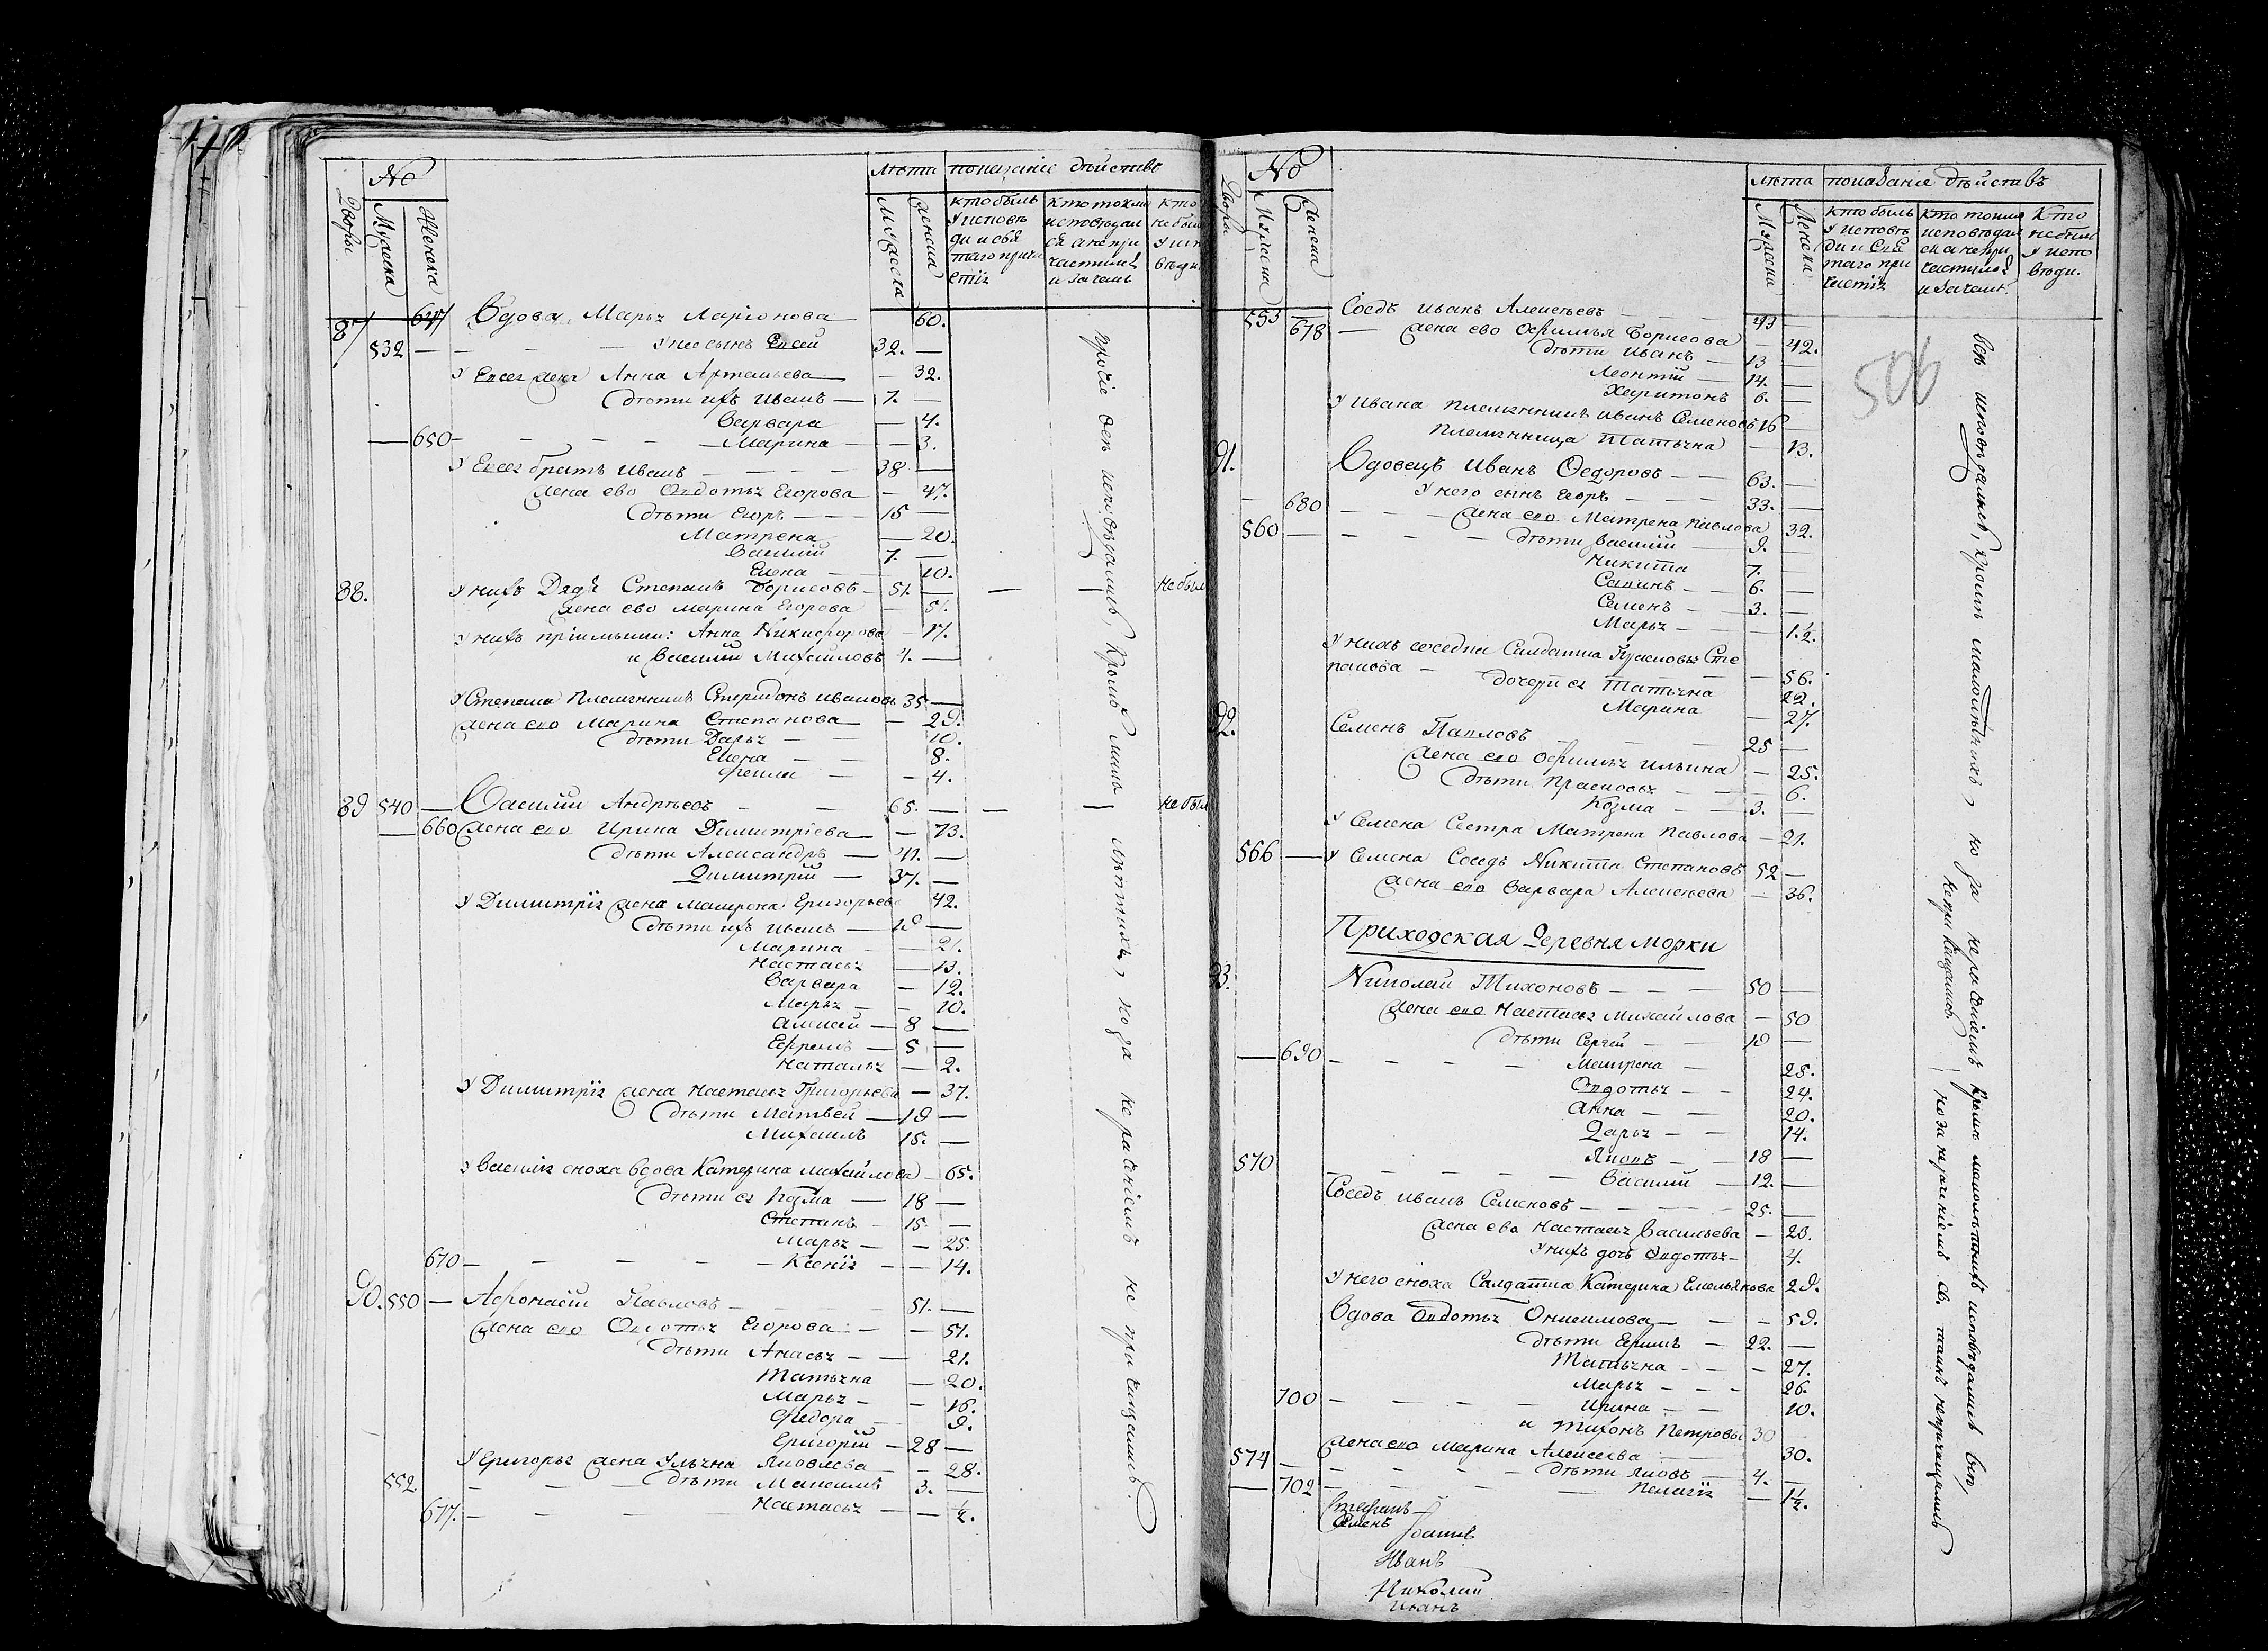 №
лѣта показаніе дѣйствъ
Дворы
Мужеска
Женска
Мужеска
Женска
кто былъ у исповѣди и свѧтаго причастіѧ
кто токмо исповѣдалсѧ а не причастилсѧ и зачемъ
кто не былъ у исповѣди
87 647 Вдова Марьѧ Ларіонова 60.
532 — — — у нее сынъ Елсей 32. —
у Елсеѧ жена Анна Артемьева — 32.
дѣти ихъ Иванъ — 7. —
Варвара — 4.
650 — — — Марина — 3.
у Елсеѧ братъ Иванъ — 38 —
жена ево Овдотьѧ Егорова — 47.
дѣти Егоръ — 15 —
Матрена — 20.
Василій 7. —
Елена — 10.
88. у нихъ дѧдѧ Степанъ Борисовъ — 51. — — — не былъ
жена ево Марина Егорова — 51.
у нихъ пріимыши: Анна Никифорова — 17.
и Василій Михайловъ 4. —
у Степана племѧнникъ Спиридонъ Ивановъ 35 —
жена ево Марина Степанова — 29.
дѣти Дарьѧ — 10.
Елена — 8.
Фекла — 4.
89 540 — Василій Андреевъ — 65. — — — не былъ
— 660 жена ево Ирина Димитріева — 73.
дѣти Александръ — 41. —
Димитрій — 37. —
у Димитріѧ жена Матрена Григорьева 42.
дѣти ихъ Иванъ — 19 —
Марина — 21.
Настасьѧ — 13.
Варвара — 12.
Марьѧ — 10.
Алексей — 8 —
Ефремъ — 5 —
Натальѧ — 2.
у Димитріѧ жена Настасьѧ Григорьева — 37.
дѣти Матвей — 19 —
Михаилъ 15. —
у Василіѧ сноха вдова Катерина Михайлова — 65.
дѣти еѧ Козма — 18 —
Степанъ — 15. —
Марьѧ — 25.
670 — — — — Ксеніѧ — — 14.
90. 550 — Афонасій Павловъ — 51. —
жена ево Овдотьѧ Егорова — 51.
дѣти Анасьѧ — 21.
Татьѧна — 20.
Марьѧ — 16.
Федора — 9.
Григорій — 28 —
у Григорьѧ жена Ульѧна Яковлева — 28.
552 — — — дѣти Максимъ 3. —
677. — — — Настасьѧ — ½.
прочіе всѣ исповѣдались, кромѣ мало лѣтныхъ, но за нераченіемъ не причащались.
№
лѣта показаніе дѣйствъ
Дворы
Мужеска
Женска
Мужеска
Женска
кто былъ у исповѣди и свѧтаго причастіѧ
кто токмо исповѣдалсѧ а не причастилсѧ и зачемъ?
кто не былъ у исповѣди.
506
553 Соседъ Иванъ Алексѣевъ — 43 —
678 — жена ево Офимьѧ Борисова — 42.
дѣти Иванъ — 13 —
Леонтій — 14. —
Харитонъ 6. —
у Ивана племѧнникъ Иванъ Семеновъ 16 —
племѧнница Татьѧна — 13.
91. Вдовецъ Иванъ Федоровъ — 63. —
у него сынъ Егоръ — 33. —
680 — — — жена ево Матрена Павлова 32.
560 — — — — дѣти Василій — 9. —
Никита 7. —
Савинъ — 6. —
Семенъ — 3. —
Марьѧ — — 1½.
у нихъ соседка салдатка Прасковьѧ Степанова — 56.
дочери еѧ Татьѧна 22.
Марина — 27.
92. Семенъ Павловъ — 25 —
жена ево Офимьѧ Ильина — 25.
дѣти Прасковьѧ — 6.
Козма — 3. —
у Семена сестра Матрена Павлова — 21.
566 — у Семена соседъ Никита Степановъ 52 —
жена ево Варвара Алексѣева — 36.
Приходская деревня Морки
93. Николай Тихоновъ — — 50 —
жена ево Настасьѧ Михайлова — 50
дѣти Сергей — 19 —
— 690 — — — Матрена — 28.
Овдотьѧ — 24.
Анна — 20.
Дарьѧ — 14.
570 Яковъ — 18 —
— — — Василій — 12. —
Соседъ Иванъ Семеновъ — 25. —
жена ево Настасьѧ Васильева — 23.
у нихъ дочь Овдотьѧ — 4.
у него сноха салдатка Катерина Емельѧнова 29.
Вдова Овдотьѧ Онисимова — — — 59.
дѣти Ефимъ — 22. —
Татьѧна — — 27.
Марьѧ — — 26.
700 — — — — Ирина — 10.
и Тихонъ Петровы 30
жена ево Марина Алексеева — 30.
574 — — — — дѣти Яковъ — 4. —
— 702 — — — Пелагіѧ — 1½.
Стефанъ
Семенъ
Иванъ
Николай
Иванъ
всѣ исповѣдались, кромѣ малолѣтныхъ, но за нераченіемъ не причащались.
кромѣ малолѣтныхъ исповѣдались всѣ, но за нераченіемъ св. таинъ не причащались